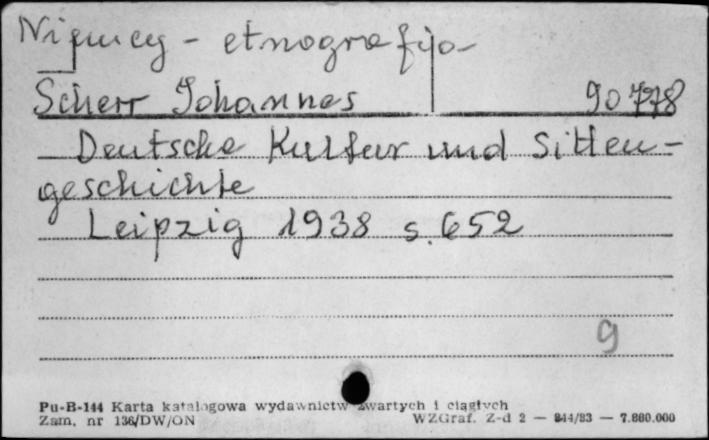 Niemcy - etnografia
Scherr Johannes 90778
Deutsche Kultur und Sitten-
geschichte
Leipzig 1938 s. 652
9
Pu-B-144 Karta katalogowa wydawnictw zwartych i ciągłych
Zam. nr 136/DW/ON WZGraf. Z-d 2 — 844/83 — 7.800.000